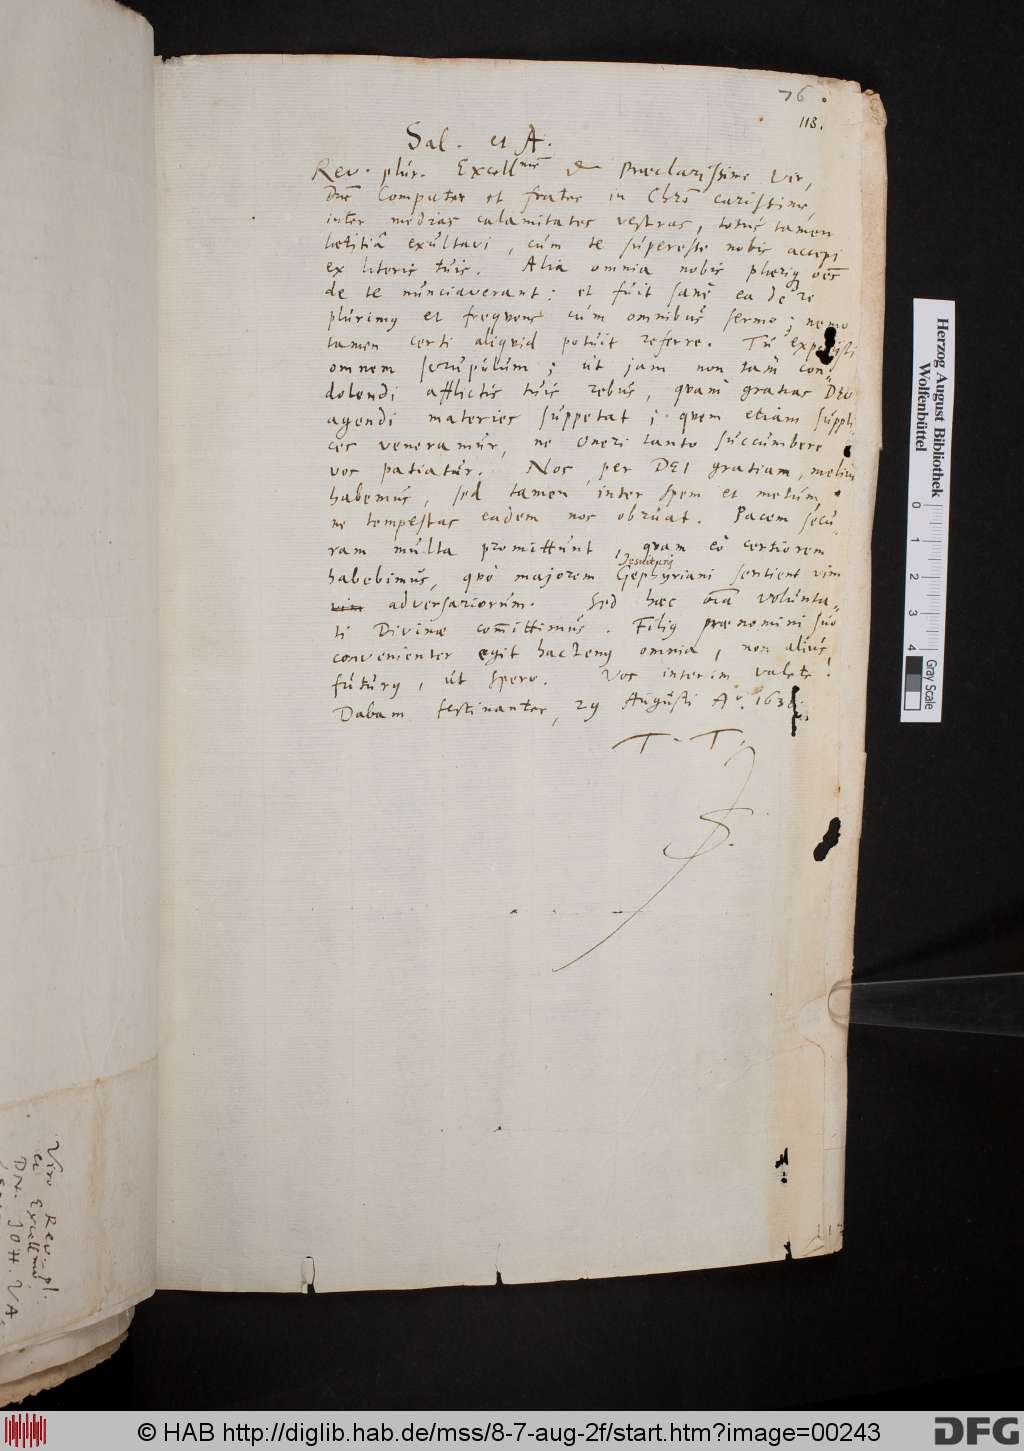 76.
113.
Sal. et A.
Rev. plur. Excell.me & Præclarissime Vir,
Dne Compater et frater in Chro carissime,
inter medias calamitates vestras, totus tamen
lætitiâ exultavi, cùm te superesse nobis accepi
ex literis tuis. Alia omnia nobis pleriq oes
de te nunciaverant: et fuit sanè ea de re
plurimus et freqvens cum omnibus sermo; nemo
tamen certi aliqvid potuit referre. Tu exp
omnem scrupulum; ut jam non tam con„
dolendi afflictis tuis rebus, qvam gratias DEO
agendi materies suppetat; qvem etiam suppli
ces veneramur, ne oneri tanto succumbere
vos patiatur. Nos, per DEI gratiam, melius
habemus, sed tamen inter spem et metum,
ne tempestas eadem nos obruat. Pacem secu„
ram multa promittunt, qvam eò certiorem
Jesuitæ
habebimus, qvò majorem Gephyriani sentient vim
vim adversariorum. Sed hæc oia volunta„
ti Divinæ committimus. Filius prænomini suo
convenienter egit hactenus omnia, non alius,
futurus, ut spero. Vos interim valete!
Dabam festinanter, 29 Augusti Ao. 163
T. T.
S.
Viro Rev. pl.
et Excellmo
DN. JOH. VA
Herzog August Bibliothek
Wolfenbüttel
0 1 2 3 4
Gray Scale
© HAB http://diglib.hab.de/mss/8-7-aug-2f/start.htm?image=00243
DFG